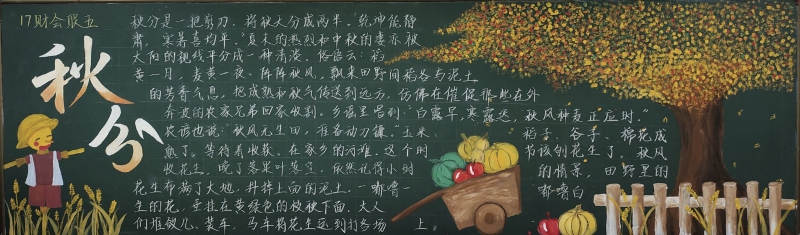 17财会联五
秋分
秋分是一把剪刀，将秋天分成两半，"乾坤能静
肃，寒暑喜均平。"夏末的热烈和中秋的
太阳的视线平分成一种清淡，俗语云：稻
黄一月，麦黄一夜，阵阵秋风，飘来田野间稻谷与泥土
的芳香气息，把成熟和秋气传送到远方，仿佛在催促那些在外
奔波的农家兄弟回家收割。乡谣里唱到"白露早，寒露迟，秋风种麦正应时。"
农谚也说："秋风无生田，准备动刀镰。"玉米、稻子、谷子、棉花成
熟了。等待着收获。在家乡的河滩，这个时节该刨花生了，秋风
收花生，晚了落果叶落空。依然记得小时的情景，田野里的
花生布满了大地，拌拌上面的泥土，一嘟噜一嘟噜白
生的花，垂挂在黄绿色的枝秧下面，大人
们堆做儿，装车，马车将花生运到打谷场上